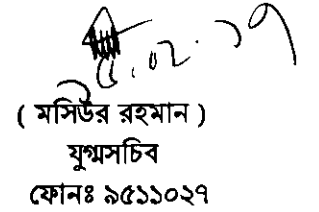 ৫.০২.১৭
( মসিউর রহমান )
যুগ্মসচিব
ফোনঃ ৯৫১১০২৭